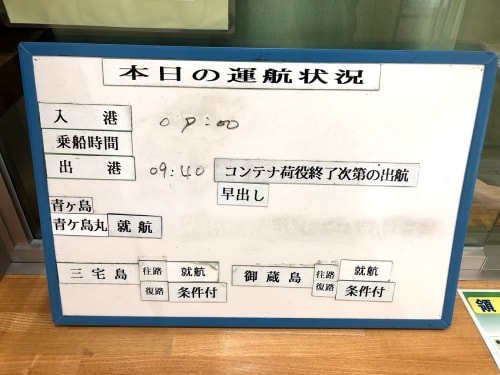 本日の運航状況
入港 09:00
乗船時間
出港 09:40 コンテナ荷役終了次第の出航
早出し
青ヶ島
青ケ島丸 就航
三宅島 往路 就航 御蔵島 往路 就航
復路 条件付 復路 条件付
領